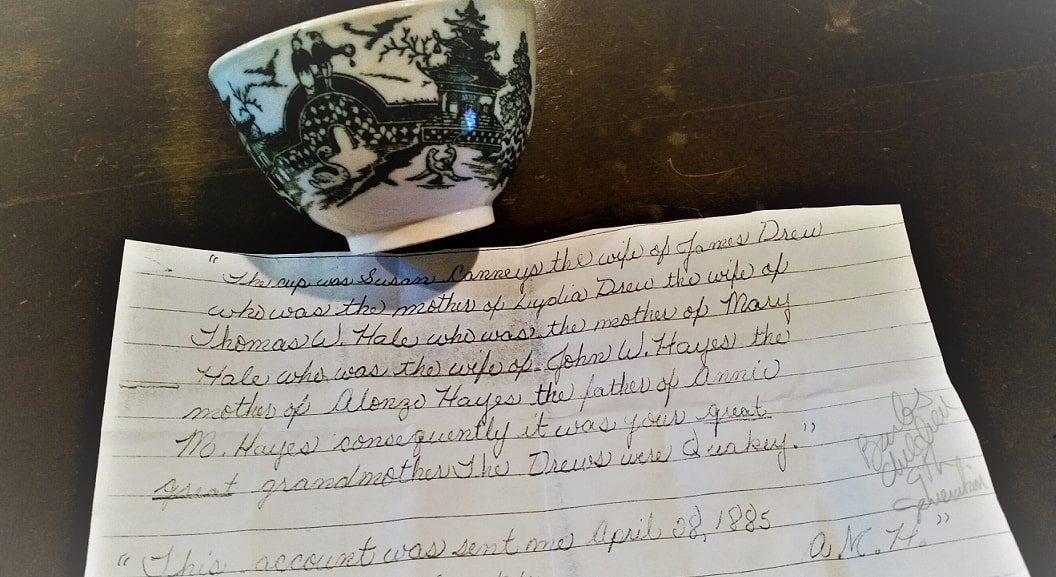 "The cup was Susan Canneys the wife of James Drew
who was the mother of Lydia Drew the wife of
Thomas W. Hale who was the mother of Mary
Hale who was the wife of John W. Hayes the
mother of Alonzo Hayes the father of Annie
M. Hayes consequently it was your great
great grandmother. The Drews were Quakey."
"This account was sent me April 28, 1885
A. M. H."
Barbs
children
generation